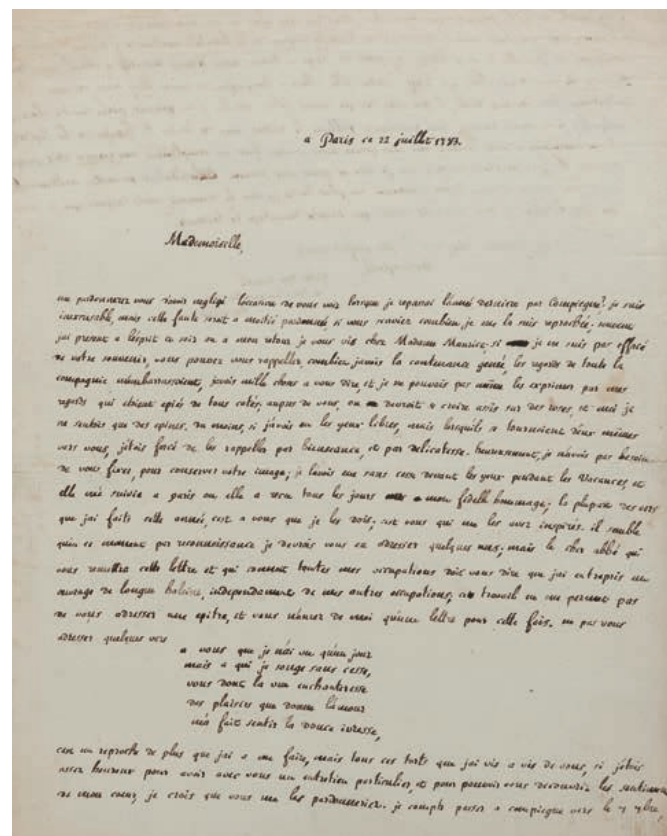 a Paris ce 22 juillet 1783.
Mademoiselle,
me pardonnerez vous d'avoir negligé l'occasion de vous voir lorsque je repassai l'année derniere par Compiegne? je suis
inexcusable, mais cette faute seroit a moitié pardonnée si vous scaviez combien je me la suis reprochée.
j'ai present a l'esprit ce soir ou a mon retour je vous vis chez Madame Maurice; si je ne suis pas effacé
de votre souvenir, vous pouvez vous rappeller, combien j'avois la contenance genée, les regards de toute la
compagnie m'embarrassoient, j'avois mille choses a vous dire, et je ne pouvois pas même les exprimer par mes
regards qui etoient epiés de tous cotés; aupres de vous, on devroit se croire assis sur des roses, et moi je
ne sentois que des epines. du moins, si j'avois eu les yeux libres, mais lorsqu'ils se tournoient d'eux mêmes
vers vous, j'étois forcé de les rappeller par bienseance, et par delicatesse. heureusement, je n'avois pas besoin
de vous fixer, pour conserver votre image; je l'avois eue sans cesse devant les yeux pendant les Vacances, et
elle m'a suivie a paris ou elle a recu tous les jours mon fidelle hommage; la plupart des vers
que j'ai faits cette année, c'est a vous que je les dois; c'est vous qui me les avez inspirés. il semble
qu'en ce moment par reconnoissance je devrois vous en adresser quelques uns; mais le cher abbé qui
vous remettra cette lettre et qui connoit toutes mes occupations doit vous dire que j'ai entrepris un
ouvrage de longue haleine, independamment de mes autres occupations; ce travail ne me permet pas
de vous adresser une epitre, et vous n'aurez de moi qu'une lettre pour cette fois. ne pas vous
adresser quelques vers
a vous que je n'ai vu qu'un jour
mais a qui je songe sans cesse,
vous dont la vue enchanteresse
des plaisirs que donne l'amour
m'a fait sentir la douce ivresse,
c'est un reproche de plus que j'ai a me faire, mais tous ces torts que j'ai vis a vis de vous, si j'étois
assez heureux pour avoir avec vous un entretien particulier, et pour pouvoir vous decouvrir les sentimens
de mon coeur, je crois que vous me les pardonneriez. je compte passer a compiegne vers le 7bre,